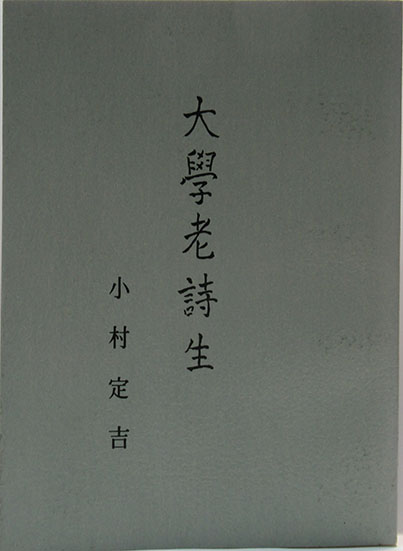 大學老詩生
小村定吉